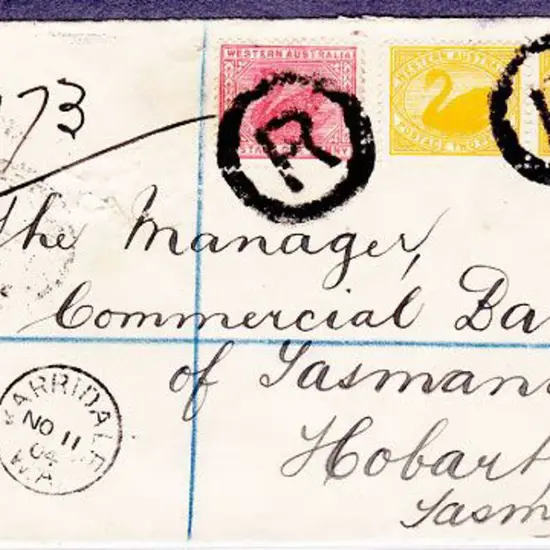 WESTERN AUSTRALIA
R
WESTERN AUSTRAL
POSTAGE TWO
73
The Manager,
Commercial Ba
of Tasmani
Hobart
Tasm
KARRIDALE
NO 11
04
W.A.